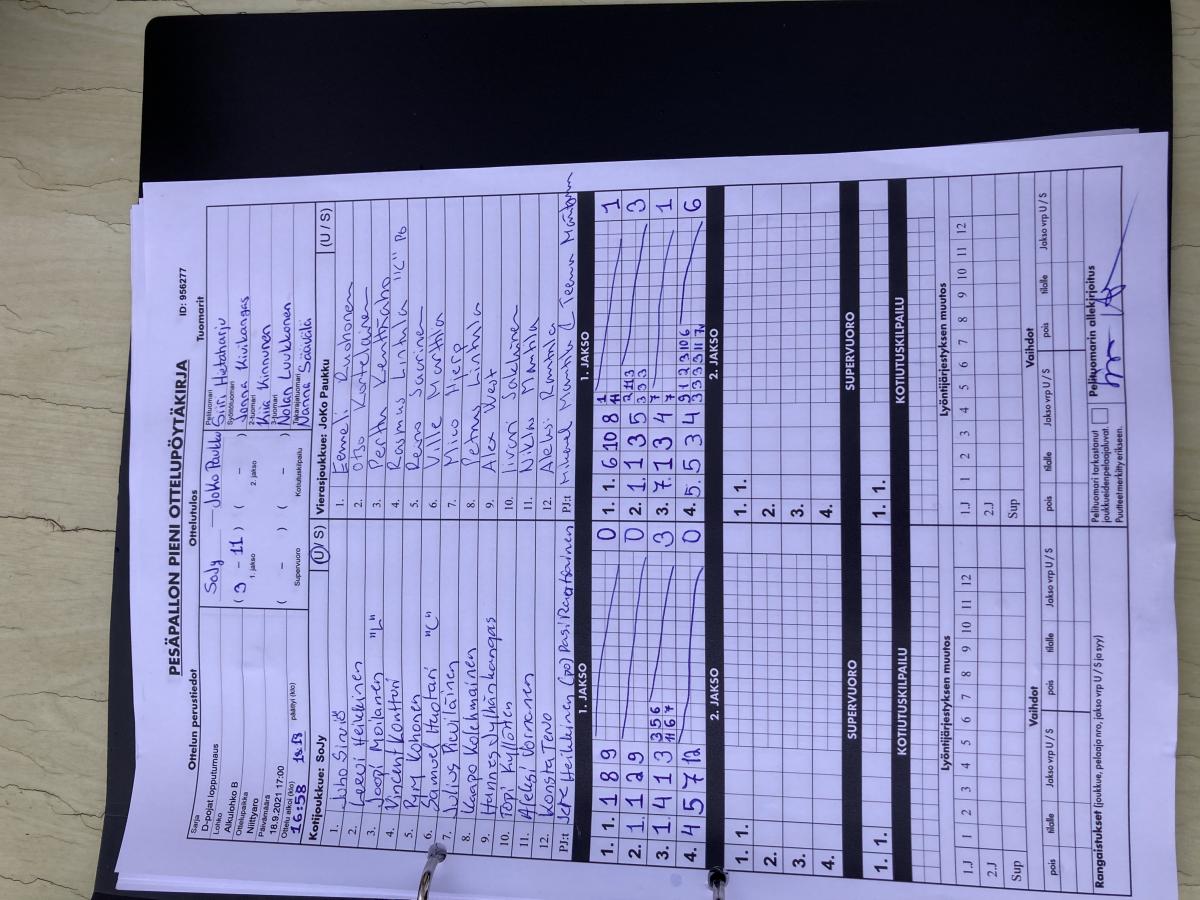 PESÄPALLON PIENI OTTELUPÖYTÄKIRJA
ID: 956277
Ottelun perustiedot
Ottelutulos
Tuomarit
Sarja
D-pojat lopputurnaus
Lohko
Alkulohko B
Ottelupaikka
Niittyaro
Päivämäärä
18.9.2021 17:00
Ottelu alkoi (klo)
päättyi (klo)
16:58
SoJy – JoKo Paukku
( 3 - 11 ) ( - )
1. jakso 2. jakso
( - ) ( - )
Supervuoro Kotiutuskilpailu
Pelituomari
Siiri Hietaharju
Syöttötuomari
Jonna Kivikangas
2-tuomari
Kiia Kinnunen
3-tuomari
Nolan Luukkonen
Takarajatuomari
Nanna Säävälä
Kotijoukkue: SoJy (U / S)
1. Juho Sirviö
2. Leevi Heikkinen
3. Joopi Moilanen "L"
4. Vincent Konttori
5. Ruy Kohonen
6. Samuel Huotari "C"
7. Julius Piuiläinen
8. Kaapo Kolehmainen
9. Hannes Jylhänkangas
10. Topi Kyllönen
11. Aleksi Voronen
12. Konsta Tervo
PJ:t Jere Heikkinen (po) Pasi Rautiainen
Vierasjoukkue: JoKo Paukku (U / S)
1. Eemeli Ruuhonen
2. Otso Kortelainen
3. Perttu Kenttäaho
4. Rasmus Lintula "C" Po
5. Remo Saurinen
6. Ville Marttila
7. Mico Hierp
8. Petrus Lintula
9. Alex West
10. Iivari Jokunen
11. Niklas Mantila
12. Aleksi Rantala
PJ:t Mikael Mantila ( Teemu Mäntynen
1. JAKSO
1. 1. 1 8 9 0
2. 1. 1 2 9 0
3. 1. 4 1 3 3 5 6 11 6 7 3
4. 4 5 7 12 0
1. JAKSO
1. 1. 6 10 8 1 11 1
2. 1. 1 3 5 2 11 3 3 3 3 3
3. 7. 1 3 4 7 7 1
4. 5. 5 3 4 9 1 2 3 10 6 3 3 3 3 11 7 6
2. JAKSO
1. 1.
2.
3.
4.
2. JAKSO
1. 1.
2.
3.
4.
SUPERVUORO
1. 1.
SUPERVUORO
1. 1.
KOTIUTUSKILPAILU
KOTIUTUSKILPAILU
Lyöntijärjestyksen muutos
1.J 1 2 3 4 5 6 7 8 9 10 11 12
2.J
Sup
Lyöntijärjestyksen muutos
1.J 1 2 3 4 5 6 7 8 9 10 11 12
2.J
Sup
Vaihdot
pois tilalle Jakso vrp U / S pois tilalle Jakso vrp U / S
Vaihdot
pois tilalle Jakso vrp U / S pois tilalle Jakso vrp U / S
Rangaistukset (joukkue, pelaaja nro, jakso vrp U / S ja syy)
Pelituomari tarkastanut
joukkueiden pelaajaluvat.
Puutteet merkitty erikseen.
Pelituomarin allekirjoitus